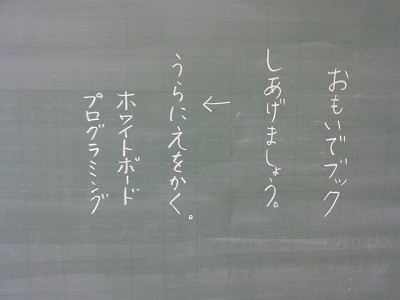 おもいでブック
しあげましょう。
←
うらにえをかく。
ホワイトボード
プログラミング